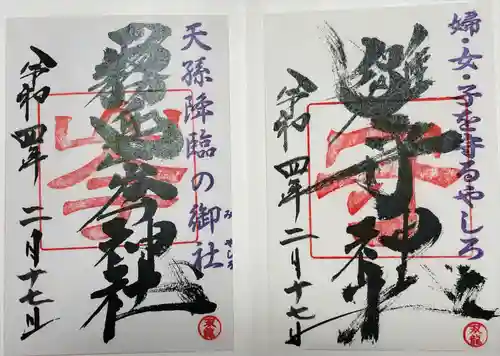 婦・女・子を守るやしろ
雛守神社
令和四年二月十七日
天孫降臨の御社
みやしろ
霧島岑神社
令和四年二月十七日